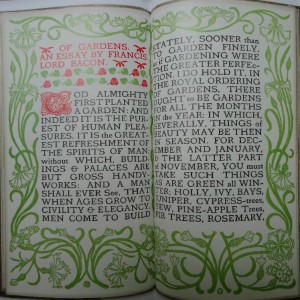 OF GARDENS.
AN ESSAY BY FRANCIS
LORD BACON.
GOD ALMIGHTY
FIRST PLANTED
A GARDEN: AND
INDEED IT IS THE PUR-
EST OF HUMAN PLEA-
SURES. IT IS THE GREAT-
EST REFRESHMENT OF
THE SPIRITS OF MAN:
without WHICH, BUILD-
INGS & PALACES ARE
BUT GROSS HANDY-
WORKS: AND A MAN
SHALL EVER SEE, THAT
WHEN AGES GROW TO
CIVILITY & ELEGANCY,
MEN COME TO BUILD
STATELY, SOONER than
TO GARDEN FINELY,
as if GARDENING WERE
THE GREATER PERFEC-
TION. I DO HOLD IT, IN
THE ROYAL ORDERING
OF GARDENS, THERE
OUGHT to BE GARDENS
FOR ALL THE MONTHS
IN the YEAR: IN WHICH,
SEVERALLY, THINGS of
BEAUTY MAY BE THEN
IN SEASON. FOR DEC-
EMBER AND JANUARY,
& THE LATTER PART
OF NOVEMBER, YOU must
TAKE SUCH THINGS
AS ARE GREEN all WIN-
TER: HOLLY, IVY, BAYS,
JUNIPER, CYPRESS-trees,
YEW, PINE-APPLE Trees,
FIR TREES, ROSEMARY,